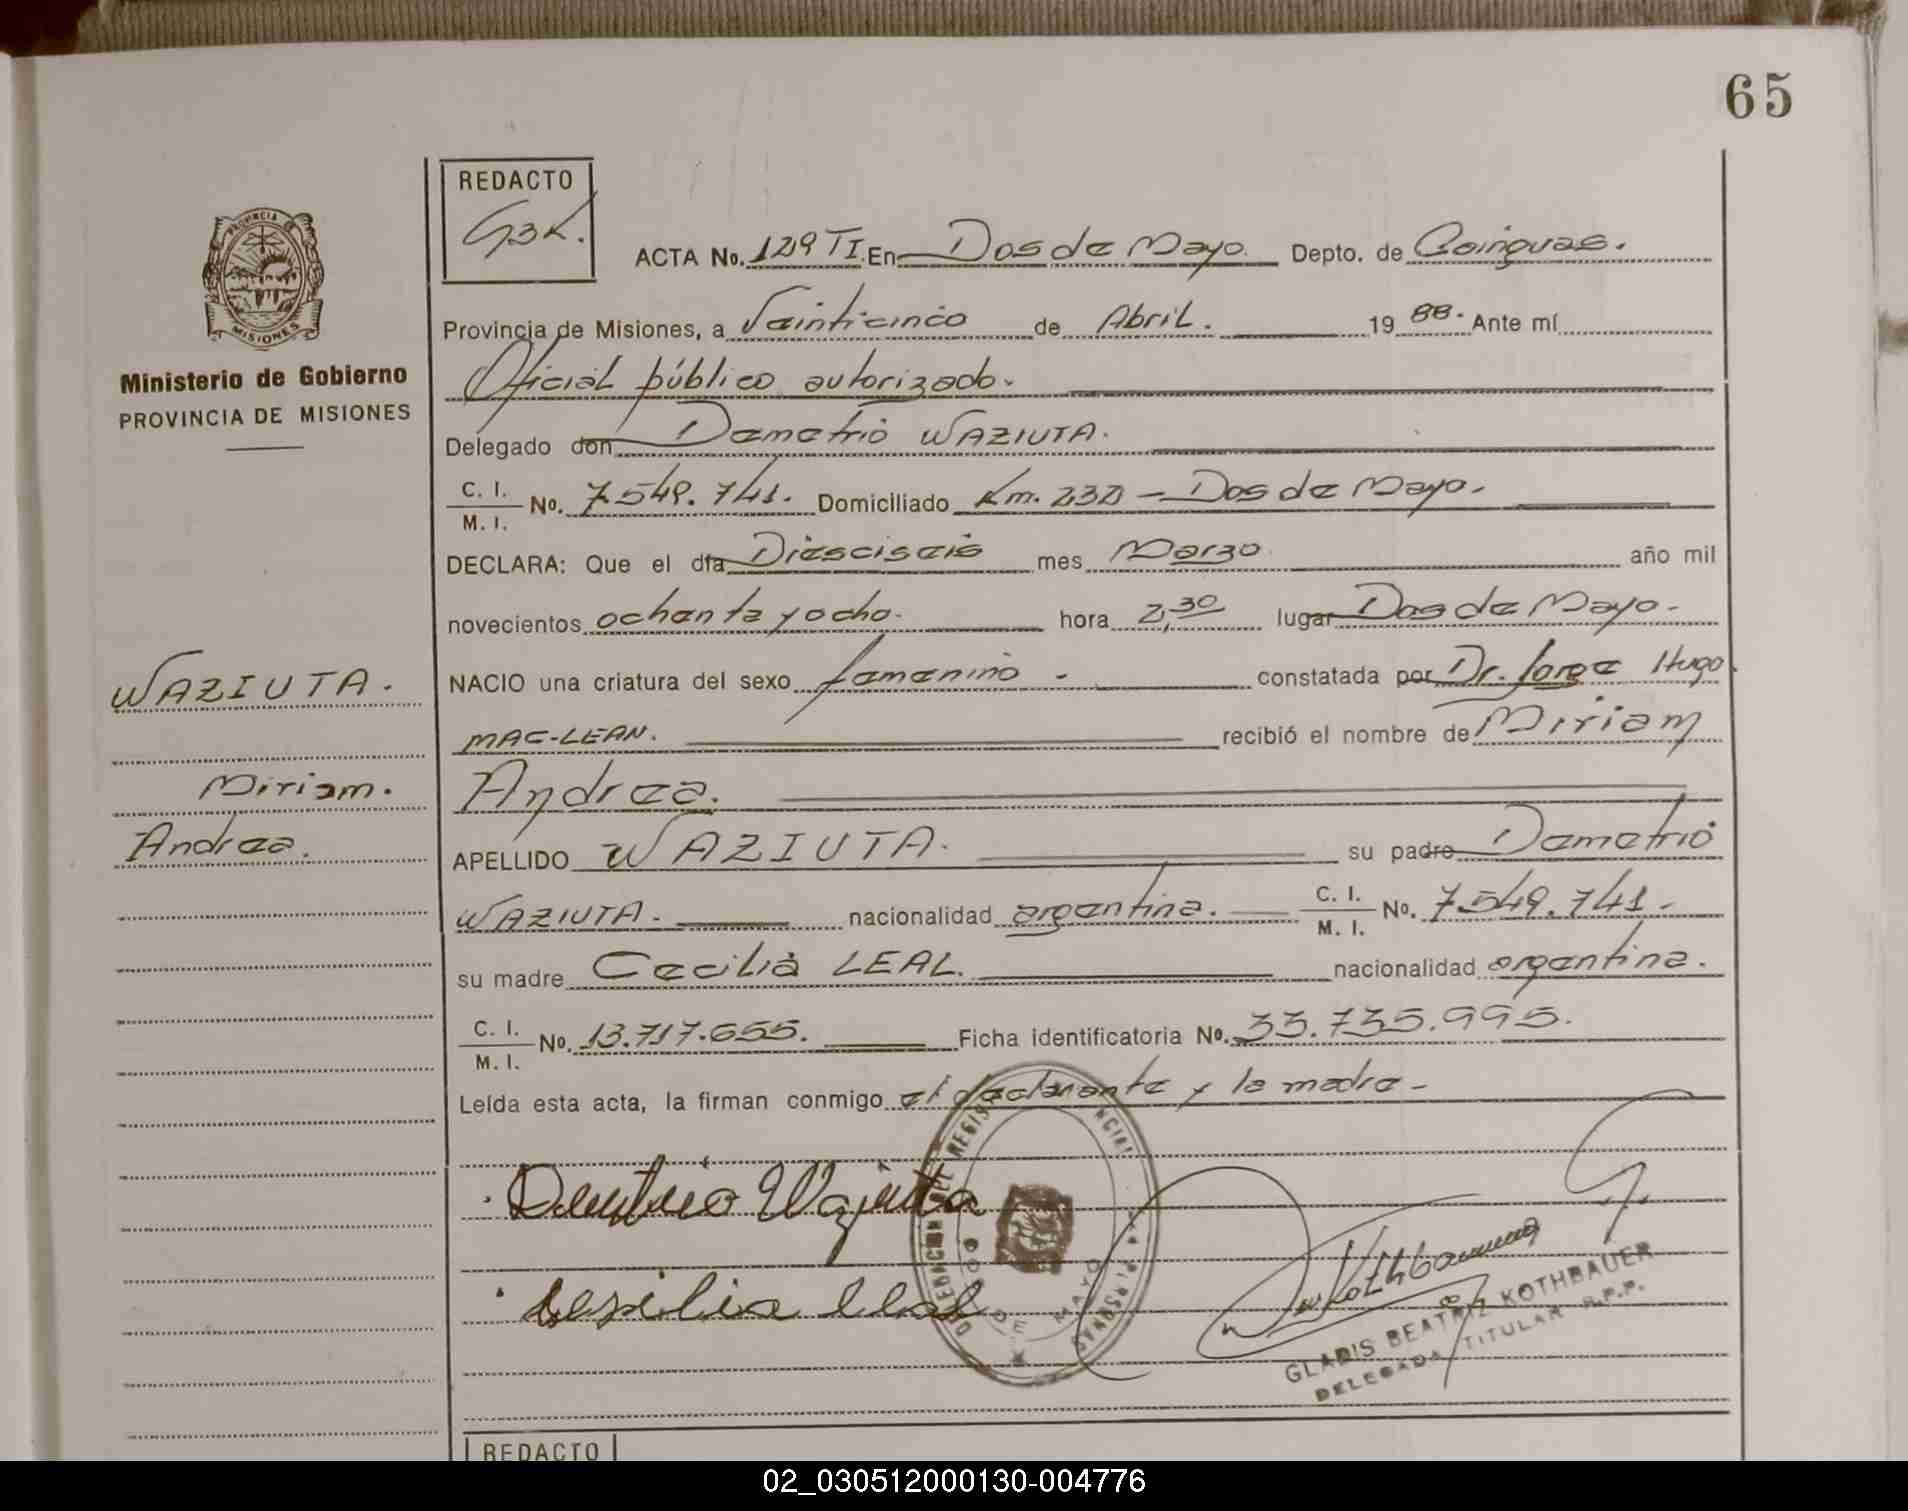 65
REDACTO
G3K.
PROVINCIA
MISIONES
ACTA No. 129 TI. En Dos de Mayo. Depto. de Cainguas.
Provincia de Misiones, a Veinticinco de Abril. 19 88. Ante mí
Ministerio de Gobierno
PROVINCIA DE MISIONES
Oficial público autorizado.
Delegado don Demetrio WAZIUTA.
C. I.
M. I. No. 7.549.741. Domiciliado Km. 232 - Dos de Mayo.
DECLARA: Que el día Diesciseis mes Marzo año mil
novecientos ochenta y ocho. hora 2,30 lugar Dos de Mayo.
NACIO una criatura del sexo femenino - constatada por Dr. Jorge Hugo
MAC-LEAN. recibió el nombre de Miriam
Andrea.
APELLIDO WAZIUTA. su padre Demetrio
WAZIUTA. nacionalidad argentina. C. I.
M. I. No. 7.549.741.
su madre Cecilia LEAL. nacionalidad argentina.
C. I.
M. I. No. 13.717.655. Ficha identificatoria No. 33.735.995.
Leída esta acta, la firman conmigo el declarante y la madre -
WAZIUTA.
Miriam.
Andrea.
Demetrio Waziuta
Sesilia leal
DOS DE MAYO
Kothbauer
GLADIS BEATRIZ KOTHBAUER
DELEGADA TITULAR R.P.P.
REDACTO
02_030512000130-004776